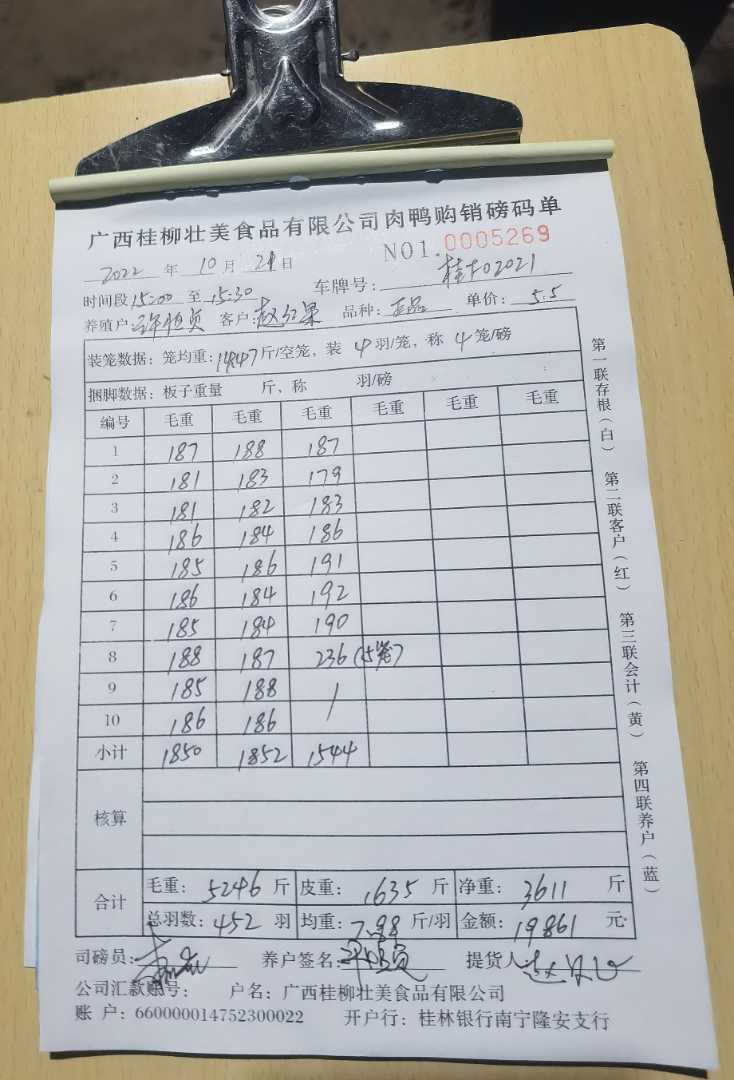 广西桂柳壮美食品有限公司肉鸭购销磅码单
2022 年 10 月 21 日 NO1.0005269
时间段 15:00 至 15:30 车牌号: 02021
养殖户: 客户: 赵红果 品种: 正品 单价: 5.5
装笼数据: 笼均重: 14.47 斤/空笼, 装 4 羽/笼, 称 4 笼/磅
捆脚数据: 板子重量 斤, 称 羽/磅
编号 毛重 毛重 毛重 毛重 毛重 毛重
1 187 188 187
2 181 183 179
3 181 182 183
4 186 184 186
5 185 186 191
6 186 184 192
7 185 184 190
8 188 187 236 (5笼)
9 185 188 /
10 186 186
小计 1850 1852 1544
核算
合计 毛重: 5246 斤 皮重: 1635 斤 净重: 3611 斤
总羽数: 452 羽 均重: 7.98 斤/羽 金额: 19861 元
司磅员: 养户签名: 提货人:
公司汇款账号: 户名: 广西桂柳壮美食品有限公司
账 户: 660000014752300022 开户行: 桂林银行南宁隆安支行
第一联存根(白) 第二联客户(红) 第三联会计(黄) 第四联养户(蓝)